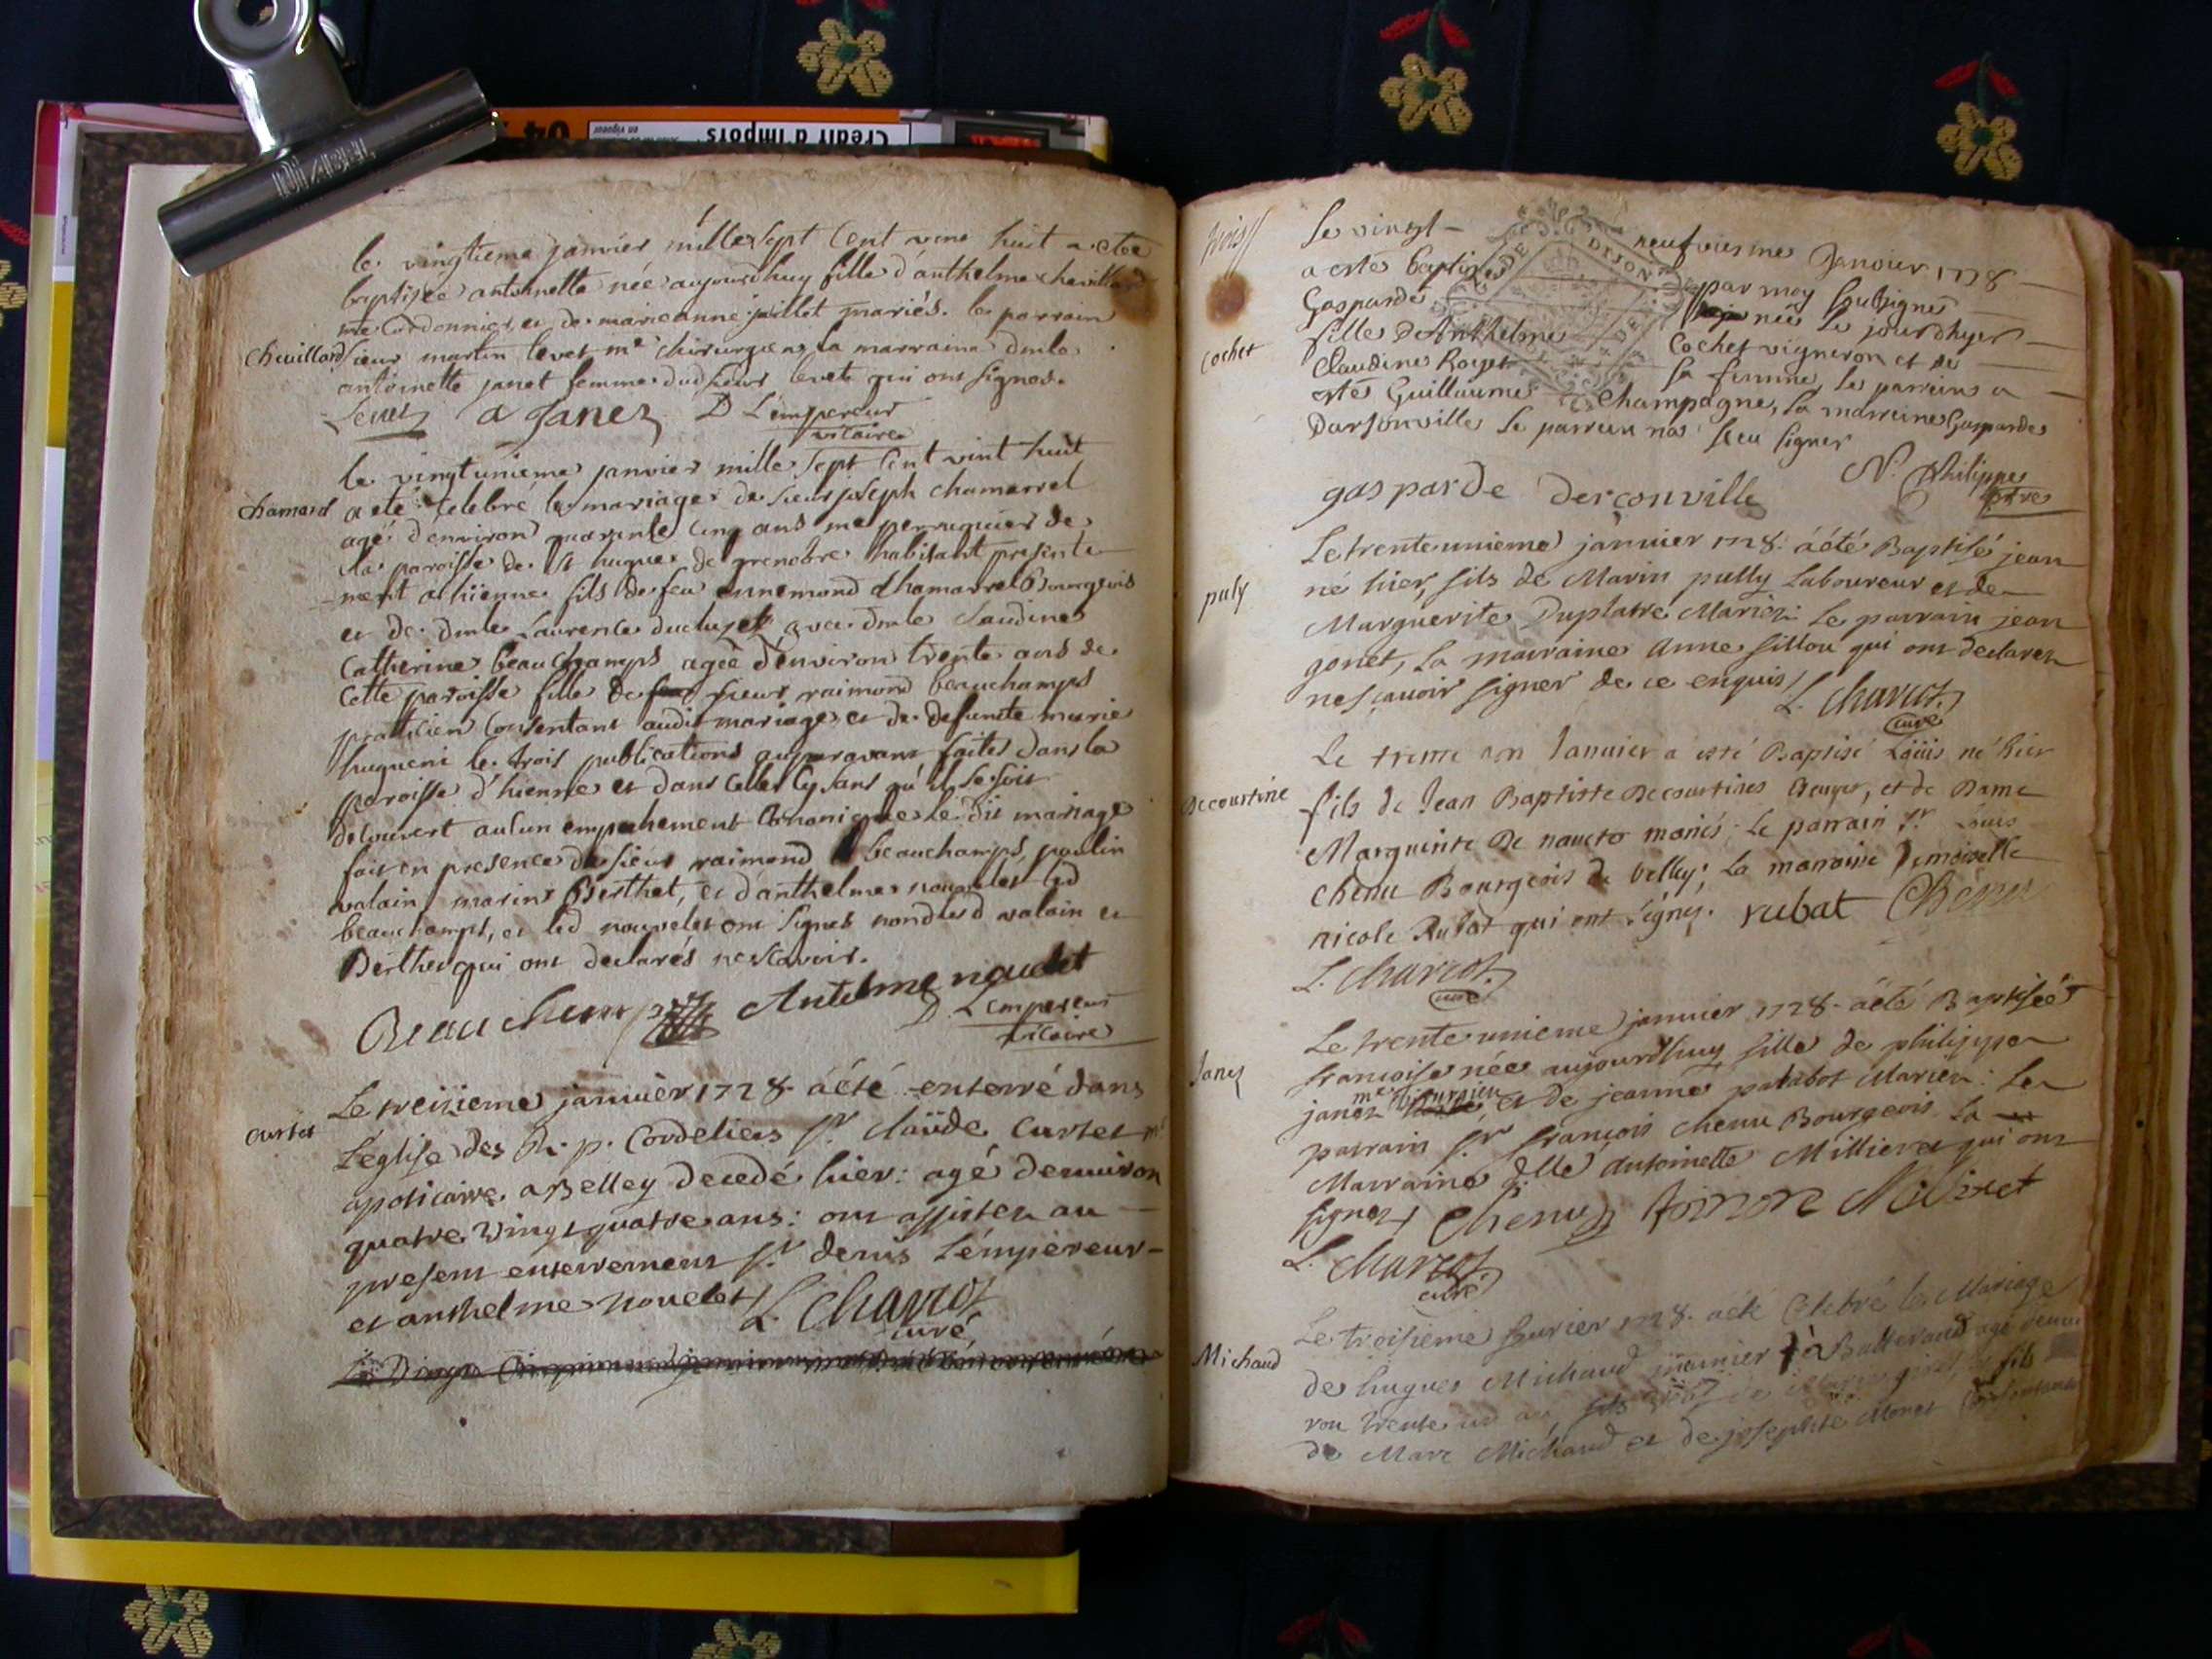 DIABEL
Crédit d'impôts
en vigueur
le vingtieme janvier mille sept cent vint huit a ete
baptisée antoinette née aujourdhuy fille d'anthelme chevillard
me Cordonnier, et de marieanne juillet mariés. le parrain
chevillard
sieur martin levet me chirurgien, la marraine dmle
antoinette janet femme dud sieur levet qui ont signés.
Levet a Janez D L'empereur
vicaire
le vingtunieme janvier mille sept cent vint huit
chamard
a eté celebré le mariage de sieur joseph chamarrel
agé d'environ quarante cinq ans me perruquier de
la paroisse de St hugues de grenoble habitant presente
ment a hienne fils de feu ennemond chamarrel Bourgeois
et de dmle Laurence avec dmle claudine
Catherine beauchamps agée d'environ trente ans de
cette paroisse fille de sieur raimond beauchamps
praticien consentant audit mariage et de defuncte marie
hugueni les trois publications auparavant faites dans la
paroisse d'hienne et dans celle cy sans qu'il se soit
decouvert aucun empechement Canonique le dit mariage
fait en presence de sieur raimond beauchamps, paulin
valain, marin Berthet, et d'anthelme nouvelet led
beauchamps, et led nouvelet ont signés non lesd valain et
Berthet qui ont declarés ne scavoir.
Beauchamp Antelme nouelet
D L'empereur
vicaire
curtet
Le treizieme januier 1728. a été enterré dans
L'église des R. p. Cordeliers Sr. claude Curtet me
apoticaire a Belley decedé hier: agé denuiron
quatre vingt quatre ans: ont assistez au
present enterrement Sr. denis L'émpereur
et anthelme nouelet L. Charcot
curé
Le vingt-neufviesme Janvier 1728
a esté baptisée par moy soubsigné
Gasparde née le jourdhyer
cochet
fille d'Anthelme Cochet vigneron et de
Claudine Royet sa femme, le parrein a
esté Guillaume Champagne, la marreine Gasparde
Darsonville le parrein n'as sceu signer
N. Philippe
ptre
gasparde derconville
Le trenteunieme januier 1728. a été Baptisé jean
puly
né hier, fils de Marin pully Laboureur et de
Marguerite Duplatre Mariez: Le parrain jean
gonet, La marraine Anne fillou qui ont declarez
ne sçauoir signer de ce enquis L. Charcot
curé
Le trente un Januier a esté Baptisé Loüis né hier
Decourtine
fils de Jean Baptiste Decourtines Ecuyer, et de Dame
Marguerite De mariés: Le parrain Sr. Loüis
chenu Bourgeois de belley; La maraine Demoiselle
nicole Rubat qui ont signez. rubat Chenu
L. Charcot
curé
Le trenteunieme januier 1728. a été Baptisée
francoise née aujourdhuy fille de philippe
Janez
janez me chirurgien et de jeanne palabot Mariez: Le
parrain Sr. françois chenu Bourgeois La
Marraine dlle Antoinette Millieret qui ont
signez Chenu toinone Miliret
L. Charcot
curé
Le troisieme feurier 1728. a été Celebré le Mariage
Michaud
de hugues Michaud à agé denui
ron trente fils
de Marc Michaud et de josephte Monet